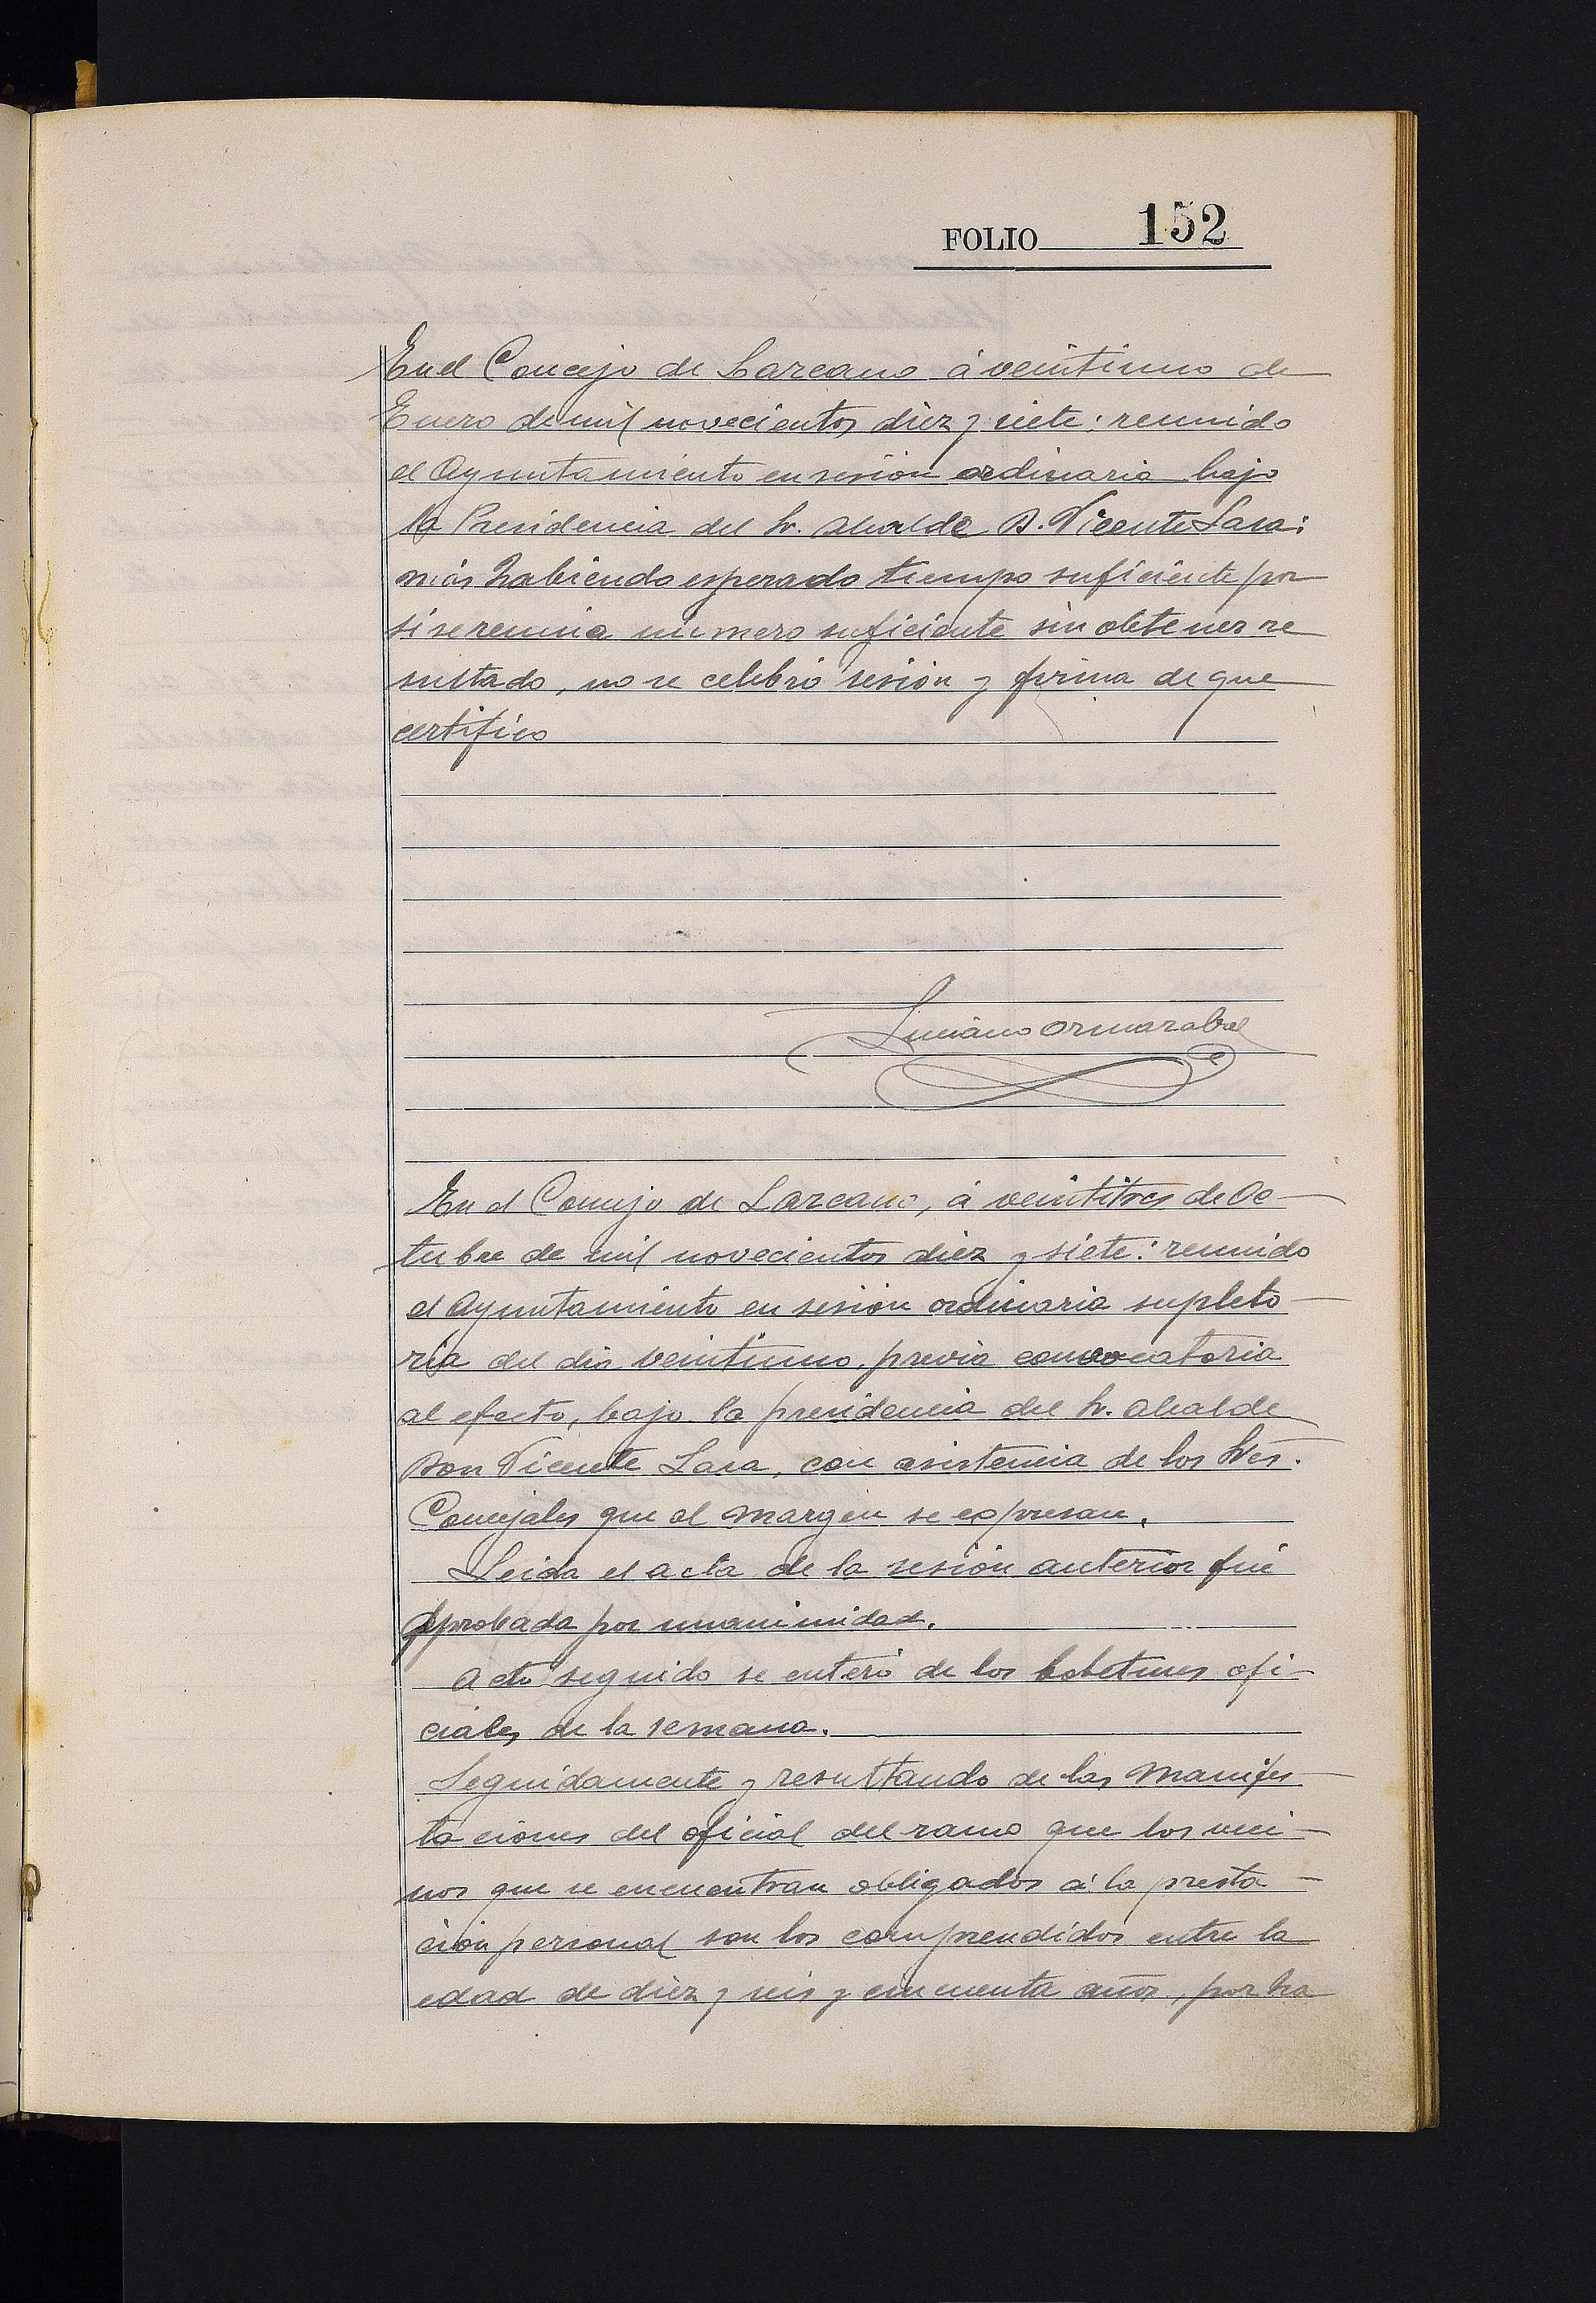 FOLIO 152
En el Concejo de Lazcano á veintiuno de
Enero de mil novecientos diez y siete: reunido
el Ayuntamiento en sesión ordinaria bajo
la Presidencia del Sr. Alcalde D. Vicente Lasa:
más habiendo esperado tiempo suficiente por
si se reunia número suficiente sin obtener re
sultado, no se celebró sesión y firma de que
certifico
Luciano Ormazabal
En el Concejo de Lazcano, á veintitres de Oc-
tubre de mil novecientos diez y siete: reunido
el Ayuntamiento en sesión ordinaria supleto-
ria del dia veintiuno, previa convocatoria
al efecto, bajo la presidencia del Sr. Alcalde
Don Vicente Lasa, con asistencia de los Sres.
Concejales que al margen se expresan.
Leida el acta de la sesión anterior fué
aprobada por unanimidad.
Acto seguido se enteró de los boletines ofi-
ciales de la semana.
Seguidamente y resultando de las manifes-
taciones del oficial del ramo que los veci-
nos que se encuentran obligados á la presta-
ción personal son los comprendidos entre la
edad de diez y seis y cincuenta años, por ha